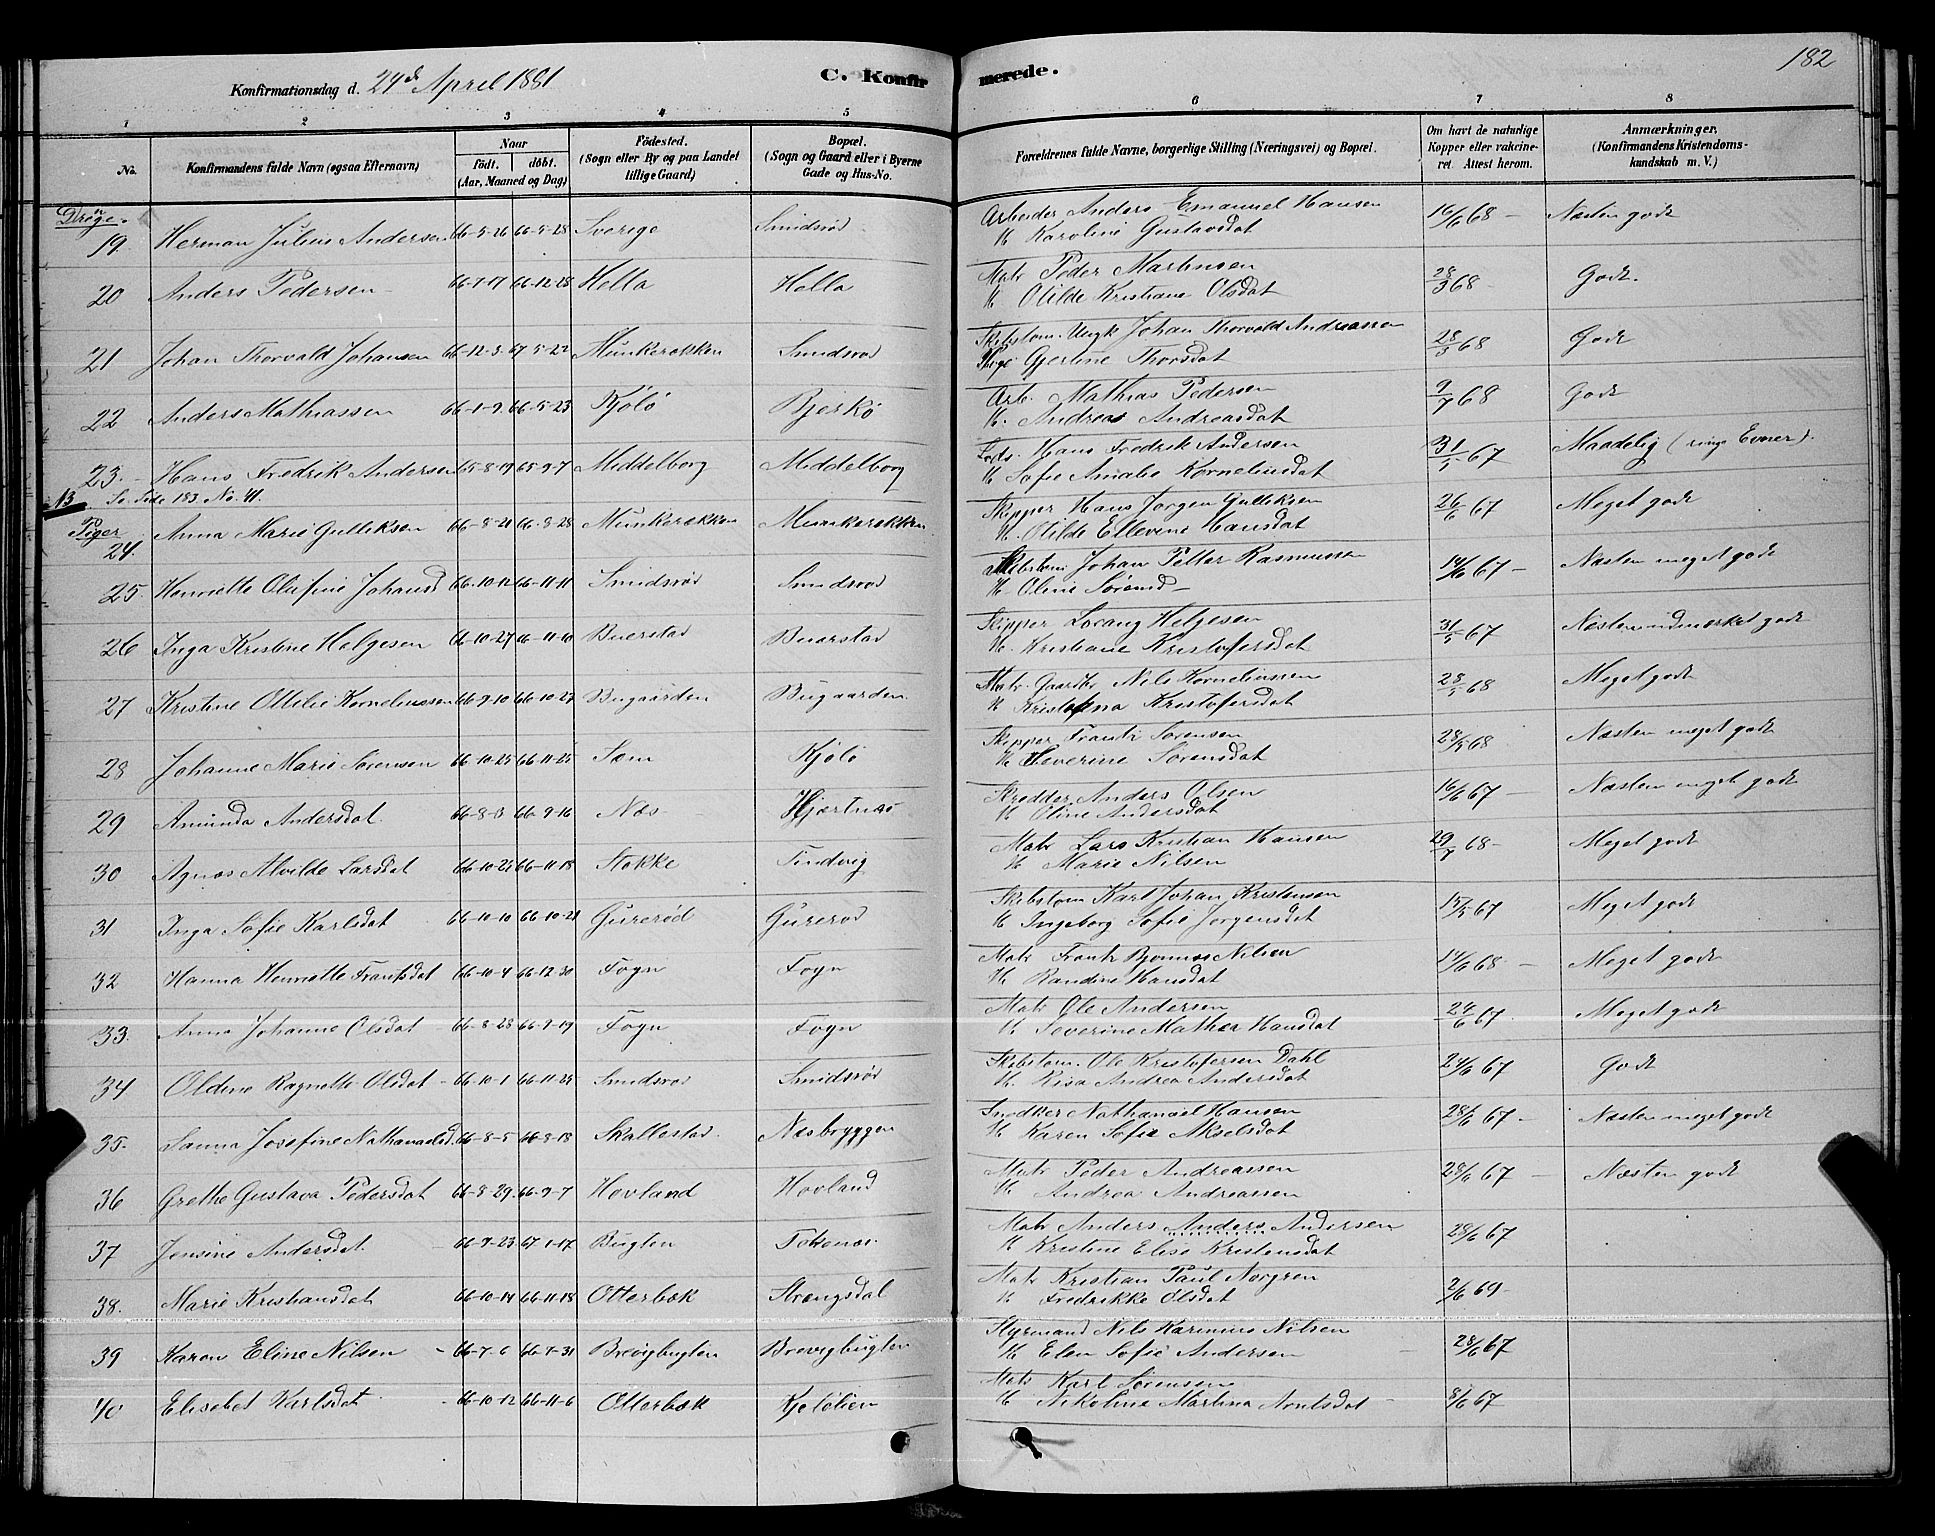 182
Konfirmationsdag d. 24de April 1881
C. Konfirmerede.
1 2 3 4 5 6 7 8
No. Konfirmandens fulde Navn (ogsaa Efternavn) Naar født. døbt. (Aar, Maaned og Dag) Fødested. (Sogn eller By og paa Landet tillige Gaard) Bopæl. (Sogn og Gaard eller i Byerne Gade og Hus-No. Forældrenes fulde Navne, borgerlige Stilling (Næringsvei) og Bopæl. Om havt de naturlige Kopper eller vakcineret. Attest herom. Anmærkninger. (Konfirmandens Kristendomskundskab m. V.)
Drenge.
19 Herman Julius Andersen 66-5-26 66-5-28 Sverige Smidsrød Arbeider Anders Emanuel Hansen 16/6 68 - Næsten godt
H. Karoline Gustavsdat
20 Anders Pedersen 66-7-17 66-12-28 Hella Hella Matr Peder Martinsen 28/3 68 Godt.
H. Otilde Kristiane Olsdat
21 Johan Thorvald Johansen 66-12-3 67-5-22 Munkerekken Smidsrød Skibstøm. Ungk Johan Thorvald Andreassen 28/5 68 Godt
Pige Gjertine Thorsdat
22 Anders Mathiassen 66-1-9 66-5-23 Kjølø Bjerkø Arb. Mathias Pedersen 9/7 68 Godt
H. Andrea Andreasdat
23. Hans Fredrik Andersen 65-8-19 65-9-7 Middelborg Middelborg Lods. Hans Fredrik Andersen 31/5 67 Maadelig (ringe Evner).
H. Sofie Amalie Kornelius​dat
13 Se Side 183 No. 41.
Piger
24. Anna Marie Gulliksen 66-8-21 66-8-28 Munkerekken Munkerekken Skipper Hans Jørgen Gulliksen 26/6 67 Meget godt
H. Otilde Ellevine Hansdat
25. Henriette Olafine Johansd 66-10-12 66-11-11 Smidsrød Smidsrød Skibstøm Johan Petter Rasmussen 14/6 67 - Næsten meget godt
H. Oline Sørensd -
26 Inga Kristine Helgesen 66-10-27 66-11-10 Buerstad Buerstad Skipper Lorang Helgesen 31/5 67 Næsten udmærket godt
H. Kristiane Kristofersdat
27 Kristine Ottilie Korneliussen 66-9-10 66-10-27 Bugaarden Bugaarden Matr. Gaardbr Nils Korneliussen 28/5 68 Meget godt
H. Kristofina Kristofersdat
28 Johanne Marie Sørensen 66-10-25 66-11-25 Sæm Kjølø Skipper Frantz Sørensen 28/5 68 Næsten meget godt
H. Severine Sørensdat
29 Amunda Andersdat. 66-8-3 66-9-16 Næs Hjertnes Skredder Anders Olsen 16/6 67 - Næsten meget godt
H. Oline Andersdat
30 Agnes Alvilde Larsdat 66-10-21 66-11-18 Stokke Tindvig Matr Lars Kristian Hansen 29/7 68 - Meget godt
H. Marie Nilsen
31 Inga Sofie Karlsdat 66-10-10 66-10-21 Gurerød Gurerød Skibstøm Karl Johan Kristensen 15/5 67 Meget godt
H. Ingeborg Sofie Jørgensdat
32 Hanna Henriette Frantsdat 66-10-4 66-12-30 Fogn Fogn Matr Frantz Bjonnes Nilsen 14/6 68 - Meget godt
H. Randine Hansdat
33. Anna Johanne Olsdat 66-8-28 66-9-19 Fogn Fogn Matr Ole Andersen 24/6 67. Meget godt
H. Severine Mathea Hansdat
34 Oldine Ragnette Olsdat 66-10-1 66-11-25 Smidsrød Smidsrød Skibstøm. Ole Kristofersen Dahl 24/6 67 Godt
H. Risa Andrea Andersdat
35. Sanna Josefine Nathanaelsd. 66-8-5 66-8-18 Skallestad Næsbryggen Snedker Nathanael Hansen 28/6 67 - Næsten meget godt
H. Karen Sofie Akselsdat
36 Grethe Gustava Pedersdat 66-8-29 66-9-7 Hovland Hovland Matr Peder Andreassen 28/6 67 - Næsten godt
H. Andrea Andreassen
37 Jensine Andersdat 66-9-23 67-1-17 Buglen Matr Anders Anders Andersen 28/6 67
H. Kristine Elise Kristensdat
38. Marie Kristiansdat 66-10-14 66-11-18 Otterbæk Strengsdal Matr Kristian Paul Norgren 2/6 69 -
H. Fredrikke Olsdat
39 Karen Eline Nilsen 66-7-6 66-7-31 Brevigbugten Brevigbugten Styrmand Nils Karinius Nilsen 28/6 67
H. Elen Sofie Andersen
40 Elisabet Karlsdat 66-10-12 66-11-6 Otterbæk Kjølølien Matr Karl Sørensen 8/6 67
H. Nikoline Martina Arntsdat -